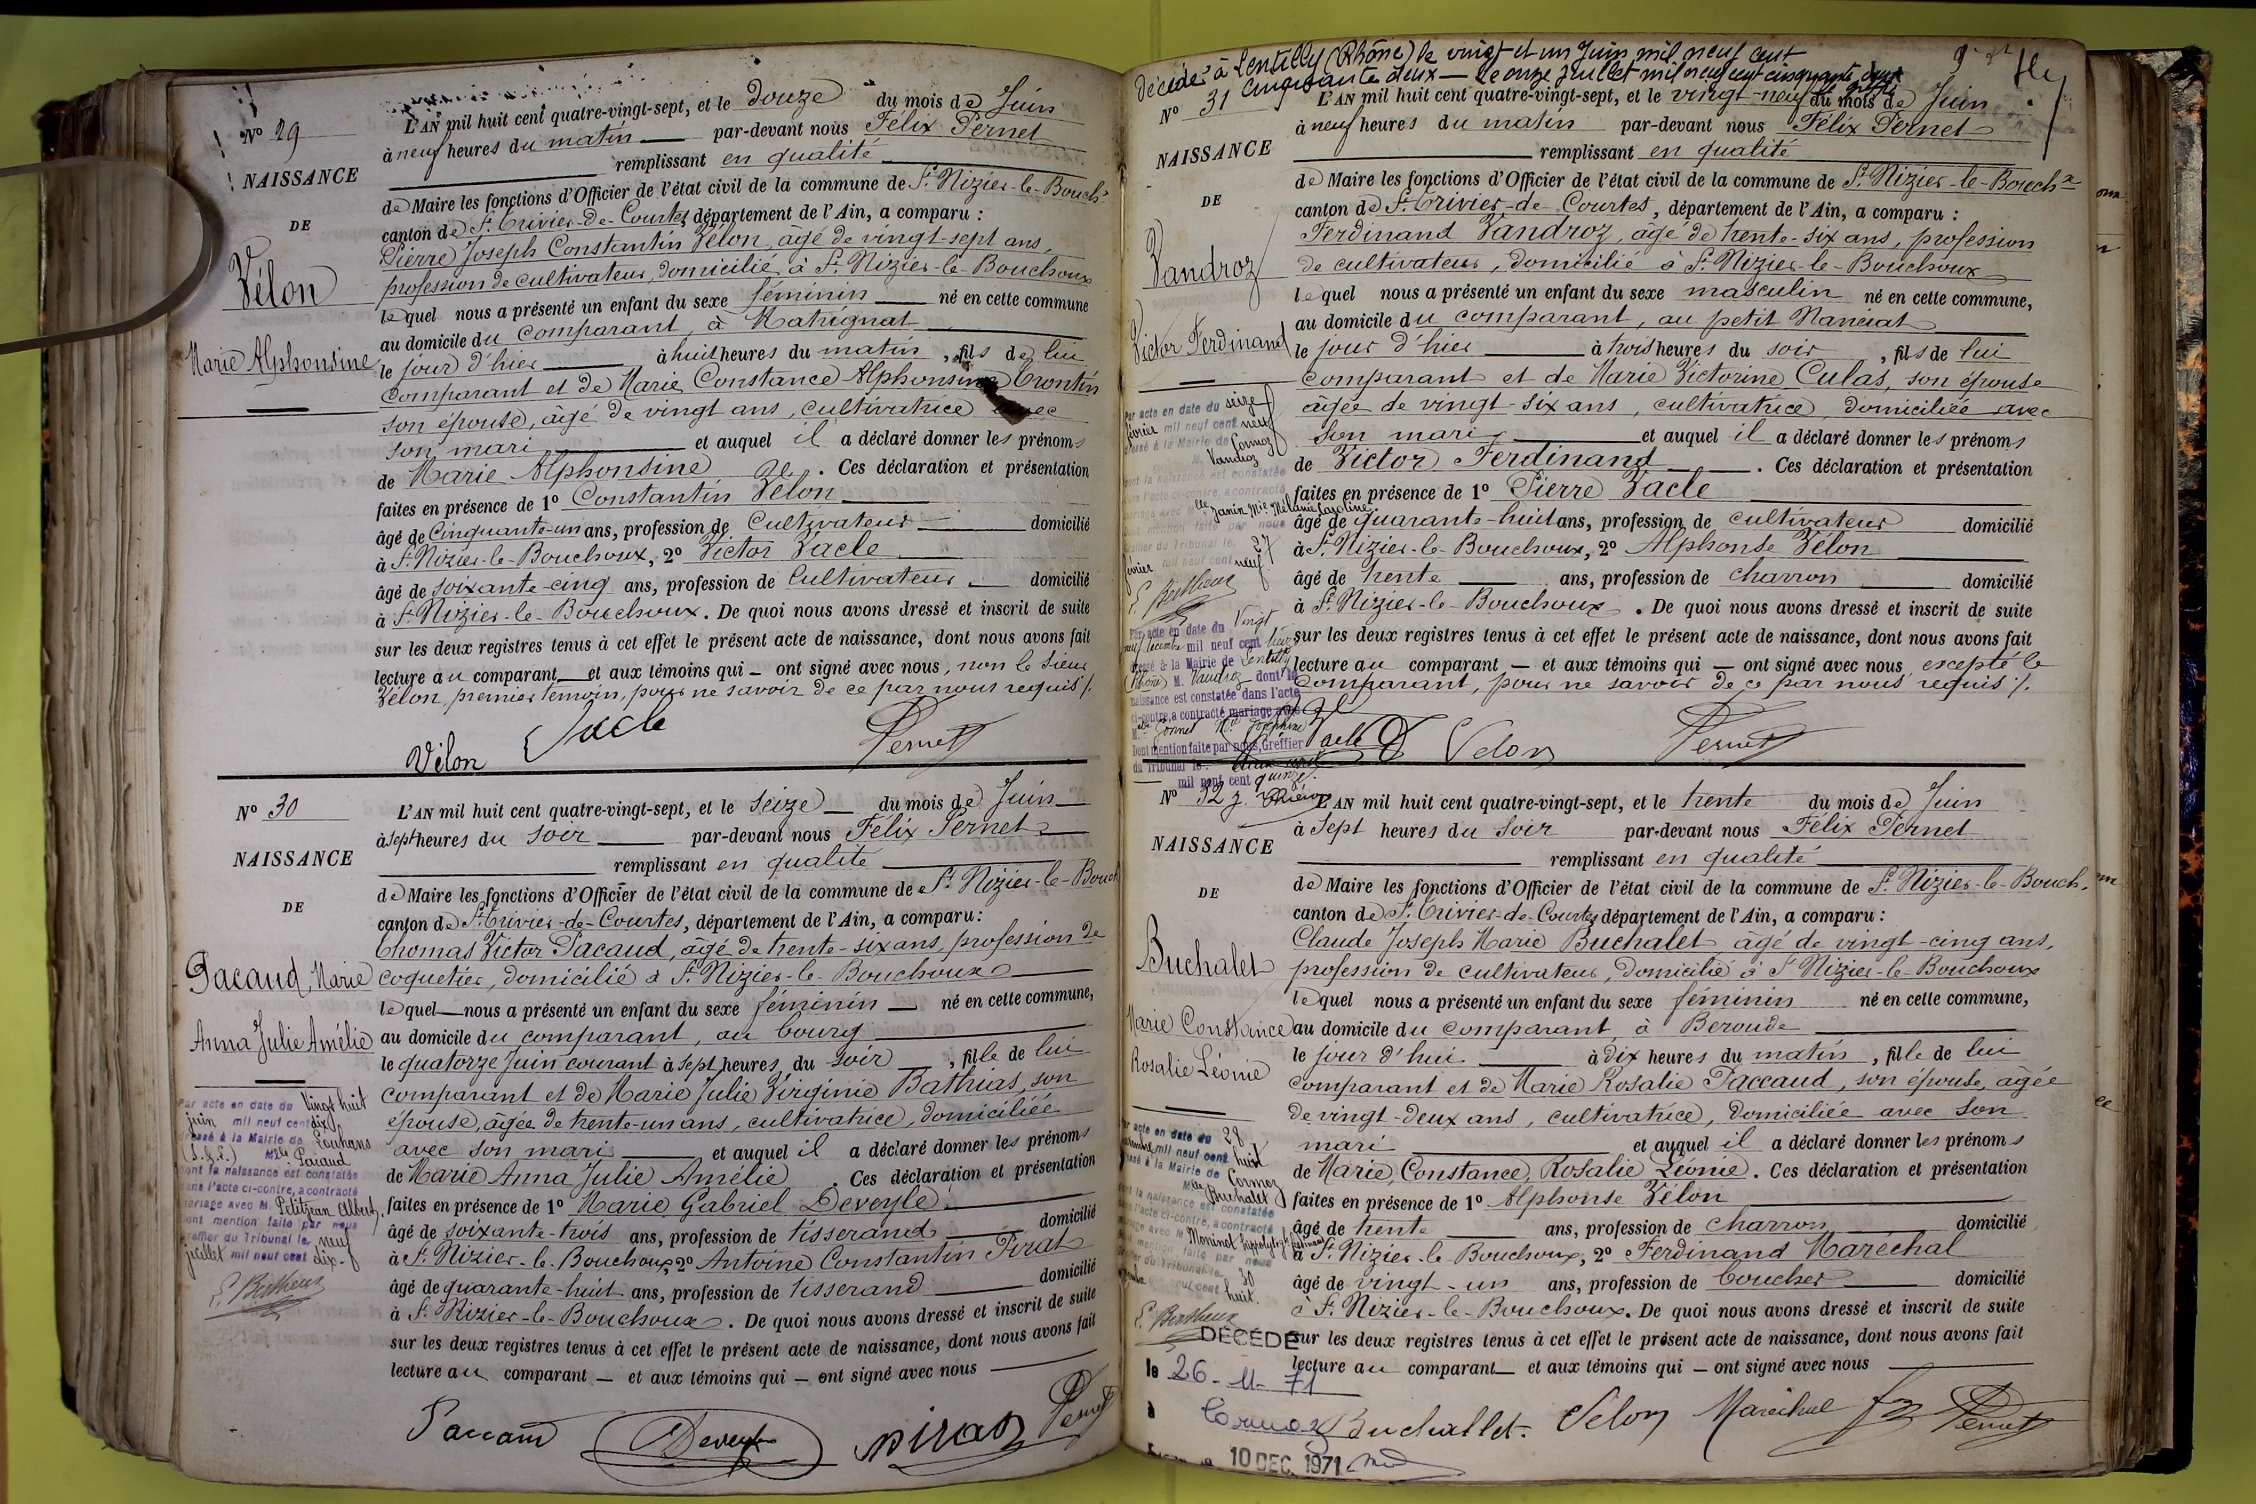 N° 29
NAISSANCE
DE
Vélon
Marie Alphonsine
L'AN mil huit cent quatre-vingt-sept, et le douze du mois de Juin
à neuf heures du matin par-devant nous Félix Pernet
remplissant en qualité
de Maire les fonctions d'Officier de l'état civil de la commune de St Nizier-le-Bouchx
canton de St Trivier-de-Courtes, département de l'Ain, a comparu :
Pierre Joseph Constantin Vélon, âgé de vingt-sept ans,
profession de cultivateur, domicilié à St Nizier-le-Bouchoux
lequel nous a présenté un enfant du sexe féminin né en cette commune
au domicile du comparant, à
le jour d'hier à huit heures du matin, fils de lui
comparant et de Marie Constance Alphonsine
son épouse, âgé de vingt ans, cultivatrice avec
son mari et auquel il a déclaré donner les prénoms
de Marie Alphonsine . Ces déclaration et présentation
faites en présence de 1° Constantin Vélon
âgé de Cinquante-un ans, profession de Cultivateur domicilié
à St Nizier-le-Bouchoux, 2° Victor Vacle
âgé de soixante-cinq ans, profession de Cultivateur domicilié
à St Nizier-le-Bouchoux. De quoi nous avons dressé et inscrit de suite
sur les deux registres tenus à cet effet le présent acte de naissance, dont nous avons fait
lecture au comparant et aux témoins qui – ont signé avec nous, non le sieur
Vélon, premier témoin, pour ne savoir de ce par nous requis /.
Vélon Vacle Pernet
N° 30
NAISSANCE
DE
Pacaud, Marie
Anna Julie Amélie
Par acte en date du Vingt huit
juin mil neuf cent dix
dressé à la Mairie de Louhans
(S.&L.) Mlle Pacaud
dont la naissance est constatée
dans l'acte ci-contre, a contracté
mariage avec M. Petitjean Albert.
Dont mention faite par nous
greffier du Tribunal le neuf
juillet mil neuf cent dix
L'AN mil huit cent quatre-vingt-sept, et le seize du mois de Juin
à sept heures du soir par-devant nous Félix Pernet
remplissant en qualité
de Maire les fonctions d'Officier de l'état civil de la commune de St Nizier-le-Bouch
canton de St Trivier-de-Courtes, département de l'Ain, a comparu :
Thomas Victor Pacaud, âgé de trente-six ans, profession de
coquetier, domicilié à St Nizier-le-Bouchoux
lequel nous a présenté un enfant du sexe féminin né en cette commune,
au domicile du comparant, au bourg
le quatorze Juin courant à sept heures du soir, fille de lui
comparant et de Marie Julie Virginie Bathias, son
épouse, âgée de trente-un ans, cultivatrice, domiciliée
avec son mari et auquel il a déclaré donner les prénoms
de Marie Anna Julie Amélie . Ces déclaration et présentation
faites en présence de 1° Marie Gabriel Deveyle
âgé de soixante-trois ans, profession de tisserand domicilié
à St Nizier-le-Bouchoux, 2° Antoine Constantin Pirat
âgé de quarante-huit ans, profession de tisserand domicilié
à St Nizier-le-Bouchoux. De quoi nous avons dressé et inscrit de suite
sur les deux registres tenus à cet effet le présent acte de naissance, dont nous avons fait
lecture au comparant – et aux témoins qui – ont signé avec nous
Paccaud Deveyle Pirat Pernet
Décédé à Lentilly (Rhône) le vingt et un Juin mil neuf cent
cinquante deux – le onze juillet mil neuf cent cinquante deux
N° 31
NAISSANCE
DE
Vandroz
Victor Ferdinand
Par acte en date du seize
février mil neuf cent neuf
dressé à la Mairie de Cormoz
M. Vandroz
dont la naissance est constatée
dans l'acte ci-contre, a contracté
mariage avec
Dont mention faite par nous
greffier du Tribunal le 27
février mil neuf cent neuf
Par acte en date du Vingt
neuf décembre mil neuf cent
dressé à la Mairie de Lentilly
(Rhône) M. Vandroz dont la
naissance est constatée dans l'acte
ci-contre, a contracté mariage avec
Dont mention faite par nous, Greffier
du Tribunal le
mil neuf cent quinze.
L'AN mil huit cent quatre-vingt-sept, et le vingt-neuf du mois de Juin
à neuf heures du matin par-devant nous Félix Pernet
remplissant en qualité
de Maire les fonctions d'Officier de l'état civil de la commune de St Nizier-le-Bouchx
canton de St Trivier-de-Courtes, département de l'Ain, a comparu :
Ferdinand Vandroz, âgé de trente-six ans, profession
de cultivateur, domicilié à St Nizier-le-Bouchoux
lequel nous a présenté un enfant du sexe masculin né en cette commune,
au domicile du comparant, au petit Nanciat
le jour d'hier à trois heures du soir, fils de lui
comparant et de Marie Victorine Culas, son épouse
âgée de vingt-six ans, cultivatrice, domiciliée avec
son mari, et auquel il a déclaré donner les prénoms
de Victor Ferdinand . Ces déclaration et présentation
faites en présence de 1° Pierre Vacle
âgé de quarante-huit ans, profession de cultivateur domicilié
à St Nizier-le-Bouchoux, 2° Alphonse Vélon
âgé de trente ans, profession de charron domicilié
à St Nizier-le-Bouchoux. De quoi nous avons dressé et inscrit de suite
sur les deux registres tenus à cet effet le présent acte de naissance, dont nous avons fait
lecture au comparant – et aux témoins qui – ont signé avec nous, excepté le
comparant, pour ne savoir de ce par nous requis /.
Vacle Velon Pernet
N° 32
NAISSANCE
DE
Buchalet
Marie Constance
Rosalie Léonie
Par acte en date du 28
mil neuf cent huit
dressé à la Mairie de Cormoz
Mlle Buchalet
dont la naissance est constatée
dans l'acte ci-contre, a contracté
mariage avec M. Moninot
Dont mention faite par nous
greffier du Tribunal le 30
mil neuf cent huit.
DÉCÉDÉ
le 26-11-71
à Cormoz
10 DEC. 1971
L'AN mil huit cent quatre-vingt-sept, et le trente du mois de Juin
à sept heures du soir par-devant nous Félix Pernet
remplissant en qualité
de Maire les fonctions d'Officier de l'état civil de la commune de St Nizier-le-Bouch.
canton de St Trivier-de-Courtes département de l'Ain, a comparu :
Claude Joseph Marie Buchalet âgé de vingt-cinq ans,
profession de cultivateur, domicilié à St Nizier-le-Bouchoux
lequel nous a présenté un enfant du sexe féminin né en cette commune,
au domicile du comparant, à Beroude
le jour d'hui à dix heures du matin, fille de lui
comparant et de Marie Rosalie Paccaud, son épouse, âgée
de vingt-deux ans, cultivatrice, domiciliée avec son
mari et auquel il a déclaré donner les prénoms
de Marie, Constance, Rosalie Léonie. Ces déclaration et présentation
faites en présence de 1° Alphonse Vélon
âgé de trente ans, profession de charron domicilié
à St Nizier-le-Bouchoux, 2° Ferdinand Maréchal
âgé de vingt-un ans, profession de boucher domicilié
à St Nizier-le-Bouchoux. De quoi nous avons dressé et inscrit de suite
sur les deux registres tenus à cet effet le présent acte de naissance, dont nous avons fait
lecture au comparant – et aux témoins qui – ont signé avec nous
Buchallet. Velon Maréchal Pernet